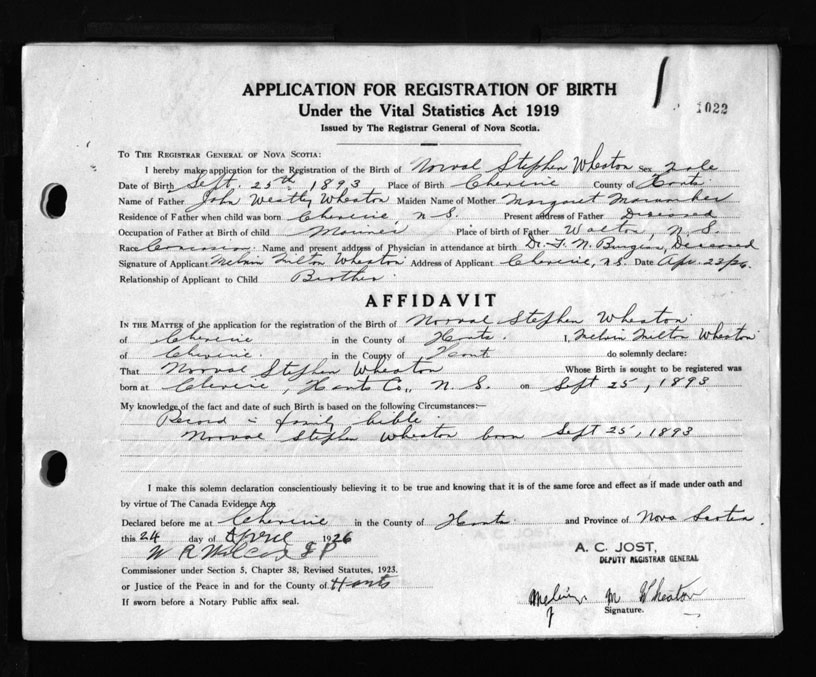 APPLICATION FOR REGISTRATION OF BIRTH
Under the Vital Statistics Act 1919
Issued by The Registrar General of Nova Scotia.
1022
TO THE REGISTRAR GENERAL OF NOVA SCOTIA:
I hereby make application for the Registration of the Birth of Norval Stephen Wheaton sex Male
Date of Birth Sept. 25th 1893 Place of Birth Cheverie County of Hants
Name of Father John Westly Wheaton Maiden Name of Mother Margaret
Residence of Father when child was born Cheverie, N.S. Present address of Father Deceased
Occupation of Father at Birth of child Mariner Place of birth of Father Walton, N.S.
Race Name and present address of Physician in attendance at birth Dr. Deceased
Signature of Applicant Melvin Milton Wheaton Address of Applicant Cheverie, N.S. Date Apr. 23/26.
Relationship of Applicant to Child Brother.
AFFIDAVIT
IN THE MATTER of the application for the registration of the Birth of Norval Stephen Wheaton
of Cheverie in the County of Hants. I, Melvin Milton Wheaton
of Cheverie. in the County of Hant do solemnly declare:
That Norval Stephen Wheaton Whose Birth is sought to be registered was
born at Cheverie, Hants Co., N.S. on Sept 25, 1893
My knowledge of the fact and date of such Birth is based on the following Circumstances:—
Record in family bible
Norval Stephen Wheaton born Sept 25, 1893
I make this solemn declaration conscientiously believing it to be true and knowing that it is of the same force and effect as if made under oath and
by virtue of The Canada Evidence Act.
Declared before me at Cheverie in the County of Hants and Province of Nova Scotia.
this 24 day of April 1926
W R Wilcox J P
A. C. JOST,
DEPUTY REGISTRAR GENERAL
Commissioner under Section 5, Chapter 38, Revised Statutes, 1923.
or Justice of the Peace in and for the County of Hants
If sworn before a Notary Public affix seal.
Melvin M Wheaton
Signature.